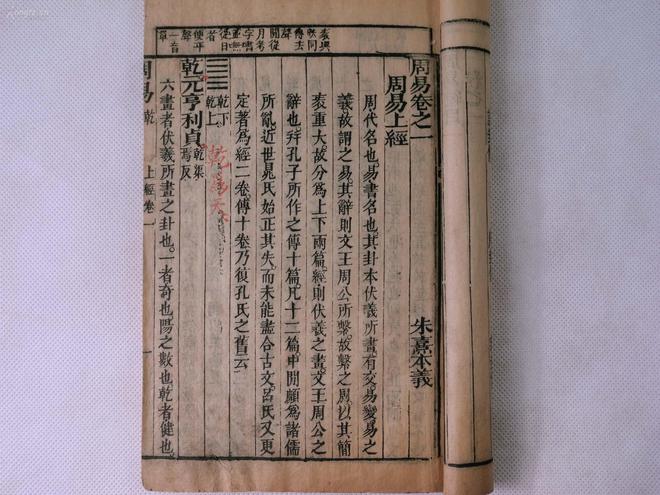 袠與
帙同
傳去
聲
閒從
月考
字書
並無
從日
者
便平
聲
一音
單
周易卷之一
周易上經
朱熹本義
周代名也。易書名也。其卦本伏羲所畫有交易變易之
義故謂之易。其辭則文王周公所繫。故繫之周。以其簡
袠重大。故分爲上下兩篇。經則伏羲之畫。文王周公之
辭也。并孔子所作之傳十篇。凡十二篇。中閒頗爲諸儒
所亂。近世晁氏始正其失。而未能盡合古文。呂氏又更
定著爲經二卷傳十卷乃復孔氏之舊云
乾下
乾上
乾為天
乾元亨利貞。乾渠焉反
六畫者伏羲所畫之卦也。一者奇也陽之數也。乾者健也。
周易 乾 上經卷一 一